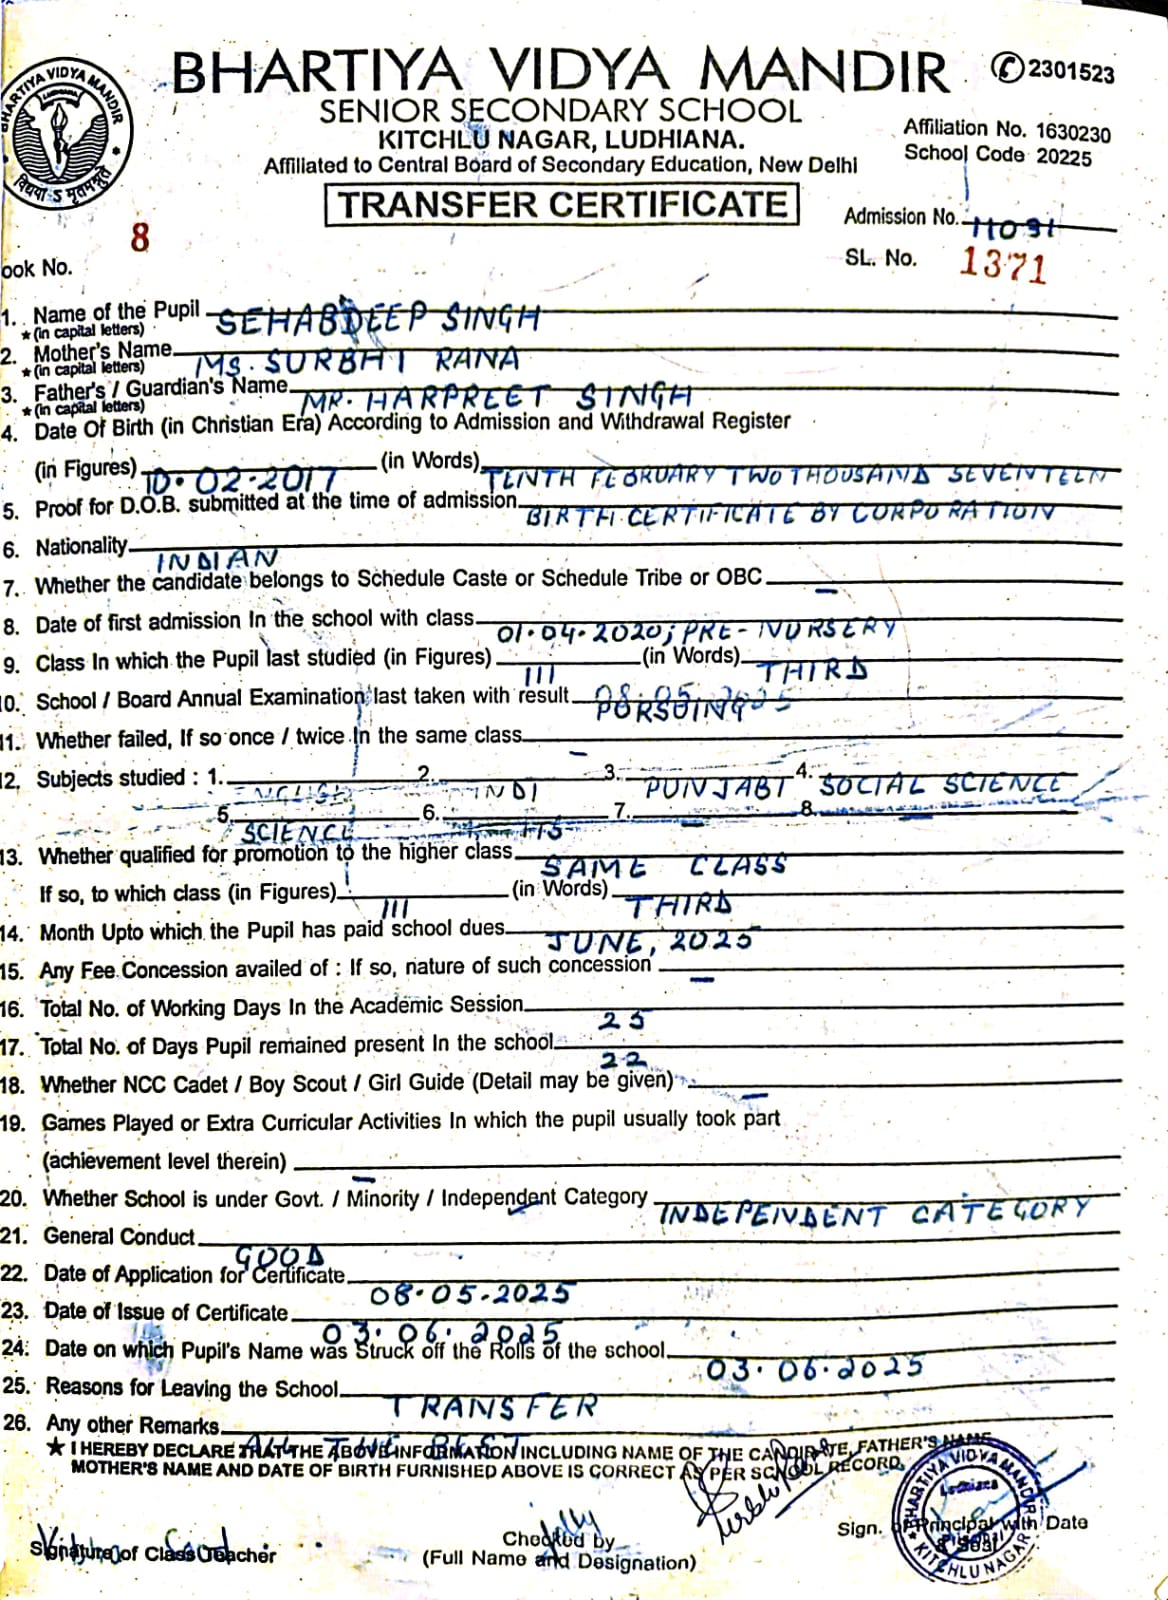 BHARTIYA VIDYA MANDIR
2301523
SENIOR SECONDARY SCHOOL
KITCHLU NAGAR, LUDHIANA.
Affiliated to Central Board of Secondary Education, New Delhi
Affiliation No. 1630230
School Code 20225
BHARTIYA VIDYA MANDIR
TRANSFER CERTIFICATE
Admission No. 11091
8
ook No.
SL. No. 1371
1. Name of the Pupil SEHABDEEP SINGH
★(in capital letters)
2. Mother's Name MS. SURBHI RANA
★(in capital letters)
3. Father's / Guardian's Name MR. HARPREET SINGH
★(in capital letters)
4. Date Of Birth (in Christian Era) According to Admission and Withdrawal Register
(in Figures) 10.02.2017 (in Words) TENTH FEBRUARY TWO THOUSAND SEVENTEEN
5. Proof for D.O.B. submitted at the time of admission BIRTH CERTIFICATE BY CORPORATION
6. Nationality INDIAN
7. Whether the candidate belongs to Schedule Caste or Schedule Tribe or OBC –
8. Date of first admission In the school with class 01.04.2020; PRE-NURSERY
9. Class In which the Pupil last studied (in Figures) III (in Words) THIRD
0. School / Board Annual Examination last taken with result PURSUING
11. Whether failed, If so once / twice In the same class –
12. Subjects studied : 1. ENGLISH 2. HINDI 3. PUNJABI 4. SOCIAL SCIENCE
5. SCIENCE 6. 7. – 8. –
13. Whether qualified for promotion to the higher class SAME CLASS
If so, to which class (in Figures) III (in Words) THIRD
14. Month Upto which the Pupil has paid school dues JUNE, 2025
15. Any Fee Concession availed of : If so, nature of such concession –
16. Total No. of Working Days In the Academic Session 25
17. Total No. of Days Pupil remained present In the school 22
18. Whether NCC Cadet / Boy Scout / Girl Guide (Detail may be given) –
19. Games Played or Extra Curricular Activities In which the pupil usually took part
(achievement level therein) –
20. Whether School is under Govt. / Minority / Independent Category INDEPENDENT CATEGORY
21. General Conduct GOOD
22. Date of Application for Certificate 08.05.2025
23. Date of Issue of Certificate 03.06.2025
24. Date on which Pupil's Name was Struck off the Rolls of the school 03.06.2025
25. Reasons for Leaving the School TRANSFER
26. Any other Remarks ALL THE BEST
★ I HEREBY DECLARE THAT THE ABOVE INFORMATION INCLUDING NAME OF THE CANDIDATE, FATHER'S NAME
MOTHER'S NAME AND DATE OF BIRTH FURNISHED ABOVE IS CORRECT AS PER SCHOOL RECORD.
BHARTIYA VIDYA MANDIR
Ludhiana
KITCHLU NAGAR
Signature of Class Teacher
Checked by
(Full Name and Designation)
Sign. of Principal with Date
& Seal